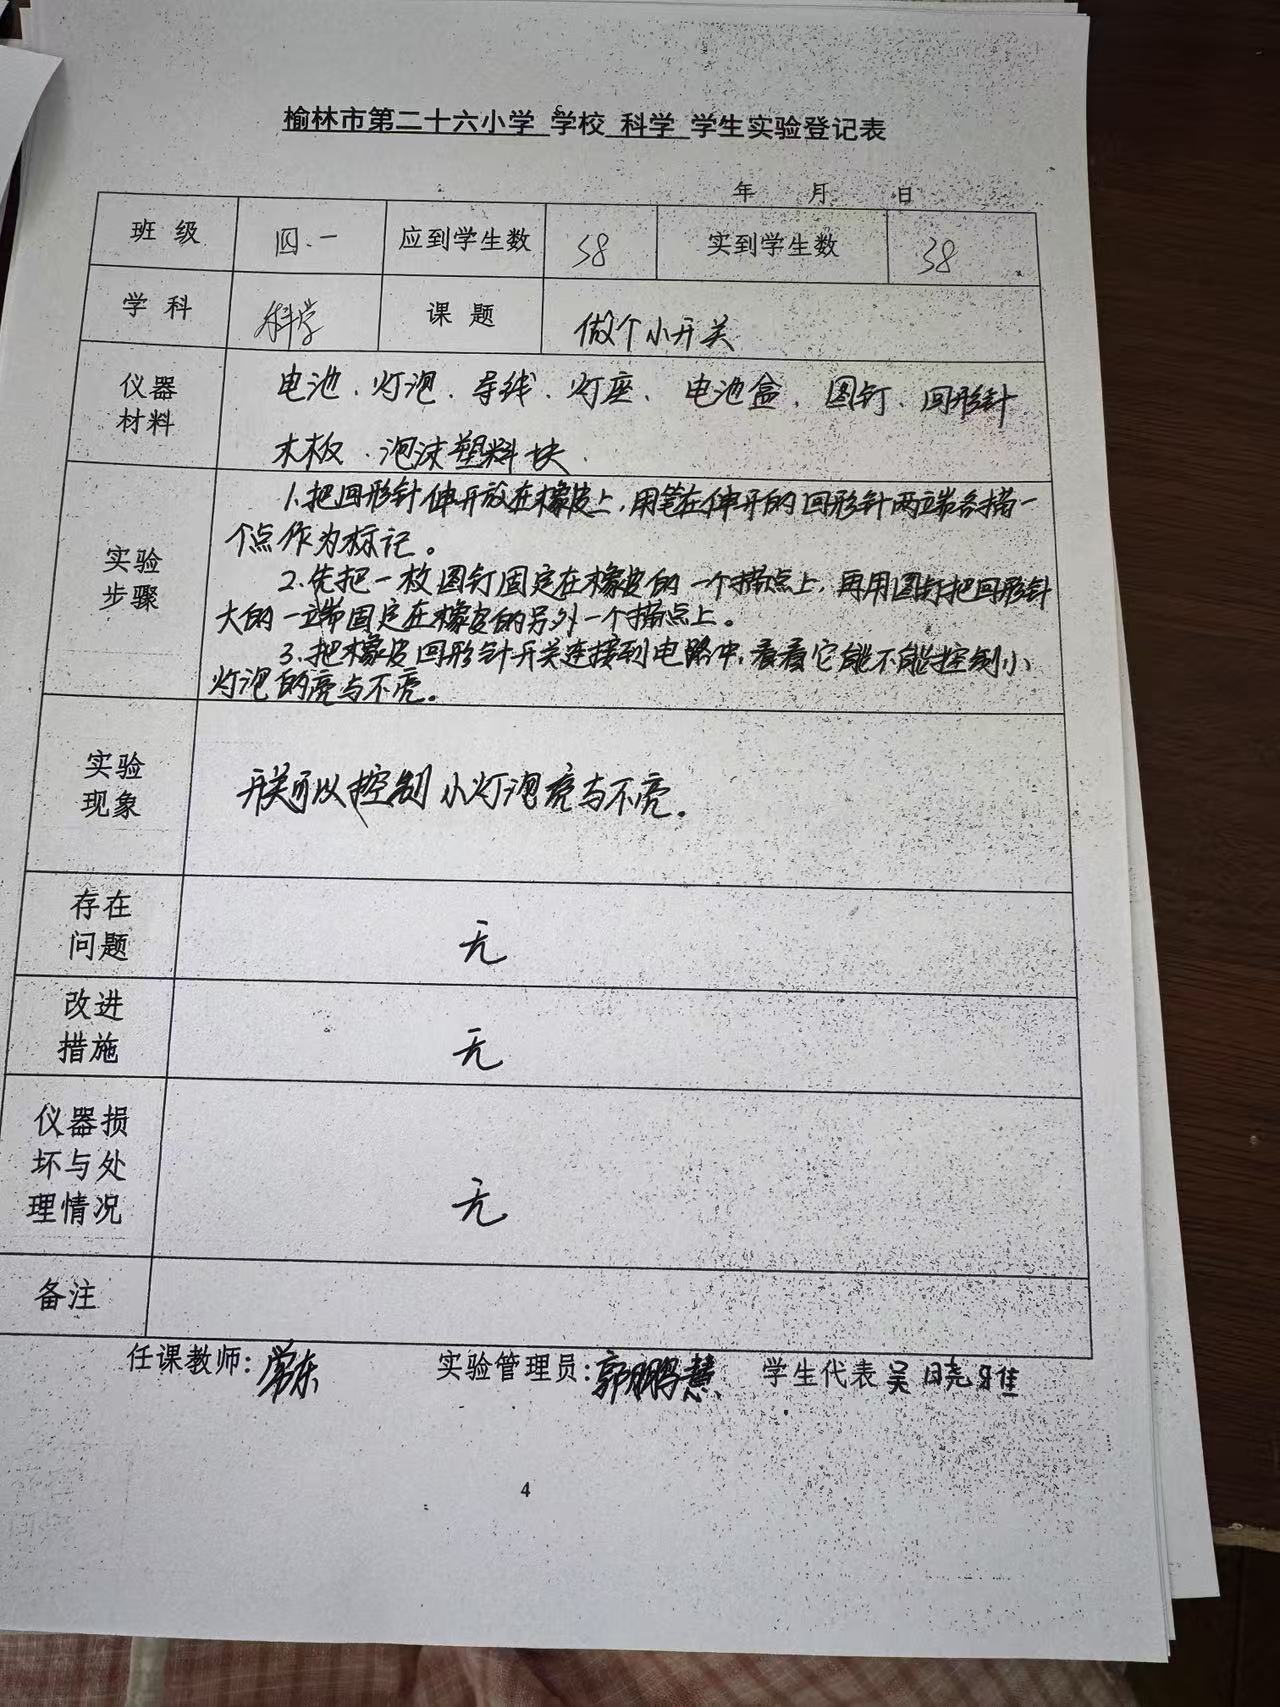 榆林市第二十六小学 学校 科学 学生实验登记表
年 月 日
班级 四.一 应到学生数 38 实到学生数 38
学科 科学 课题 做个小开关
仪器材料 电池、灯泡、导线、灯座、电池盒、图钉、回形针
木板、泡沫塑料块
实验步骤 1.把回形针伸开放在橡皮上,用笔在伸开的回形针两端各描一
个点作为标记。
2.先把一枚图钉固定在橡皮的一个描点上,再用图钉把回形针
大的一端固定在橡皮的另外一个描点上。
3.把橡皮回形针开关连接到电路中,看看它能不能控制小
灯泡的亮与不亮。
实验现象 开关可以控制小灯泡亮与不亮。
存在问题 无
改进措施 无
仪器损坏与处理情况 无
备注
任课教师: 实验管理员:郭鹏慧 学生代表 吴晓雅
4